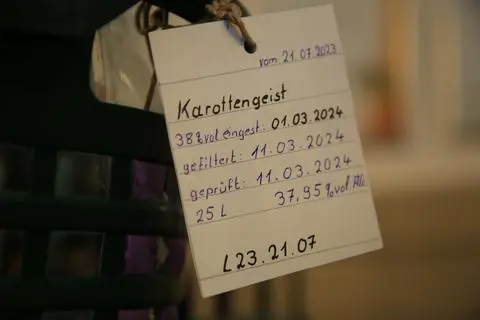 vom 21.07.2023
Karottengeist
38%vol eingest: 01.03.2024
gefiltert: 11.03.2024
geprüft: 11.03.2024
25 L 37,95%vol Alc
L23.21.07